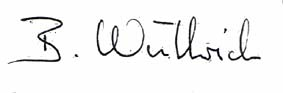 B. Wüthrich